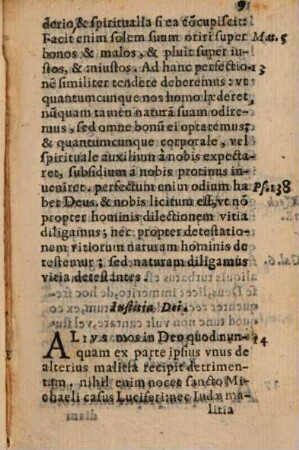 9
derio, & spiritualia si ea cōcupiscit:
Facit enim solem suum oriri super Mat. 5
bonos & malos, & pluit super iu-
stos, & iniustos. Ad hanc perfectio- 13
nē similiter tendere deberemus: vt
quantumcunque nos homo læderet,
nūquam tamen naturā suam odire-
mus, sed omne bonū ei optaremus;
& quantumcunque corporale, vel
spirituale auxilium à nobis expecta-
ret, subsidium à nobis protinus in-
ueniret. perfectum enim odium ha Ps. 138
bet Deus, & nobis licitum est, vt nō
propter hominis dilectionem vitia
diligamus; nec propter detestatio-
nem vitiorum naturam hominis de
testemur; sed naturam diligamus
vitia detestantes.
Iustitia Dei.
ALIVS mos in Deo quod nun- 14
quam ex parte ipsius vnus de
alterius malitia recipit detrimen-
tum. nihil enim nocet sancto Mi-
chaeli casus Luciferi: nec Iudæ ma-
litia